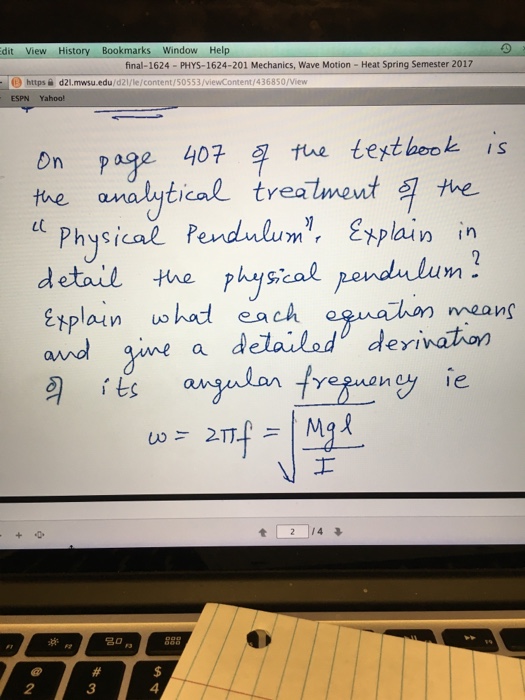 Edit View History Bookmarks Window Help
final-1624 - PHYS-1624-201 Mechanics, Wave Motion - Heat Spring Semester 2017
https d2l.mwsu.edu/d2l/le/content/50553/viewContent/436850/View
ESPN Yahoo!
On page 407 of the textbook is
the analytical treatment of the
"Physical Pendulum". Explain in
detail the physical pendulum?
Explain what each equation means
and give a detailed derivation
of its angular frequency ie
ω = 2πf = √(Mgl / I)
2 / 4
F1 F2 F3
@ # $
2 3 4